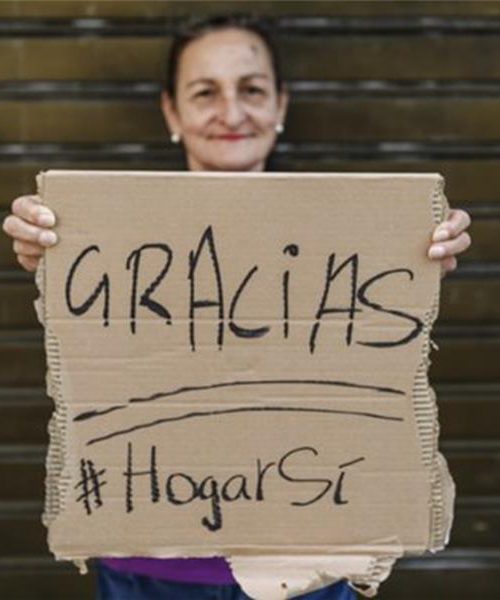 GRACiAS
#HogarSí